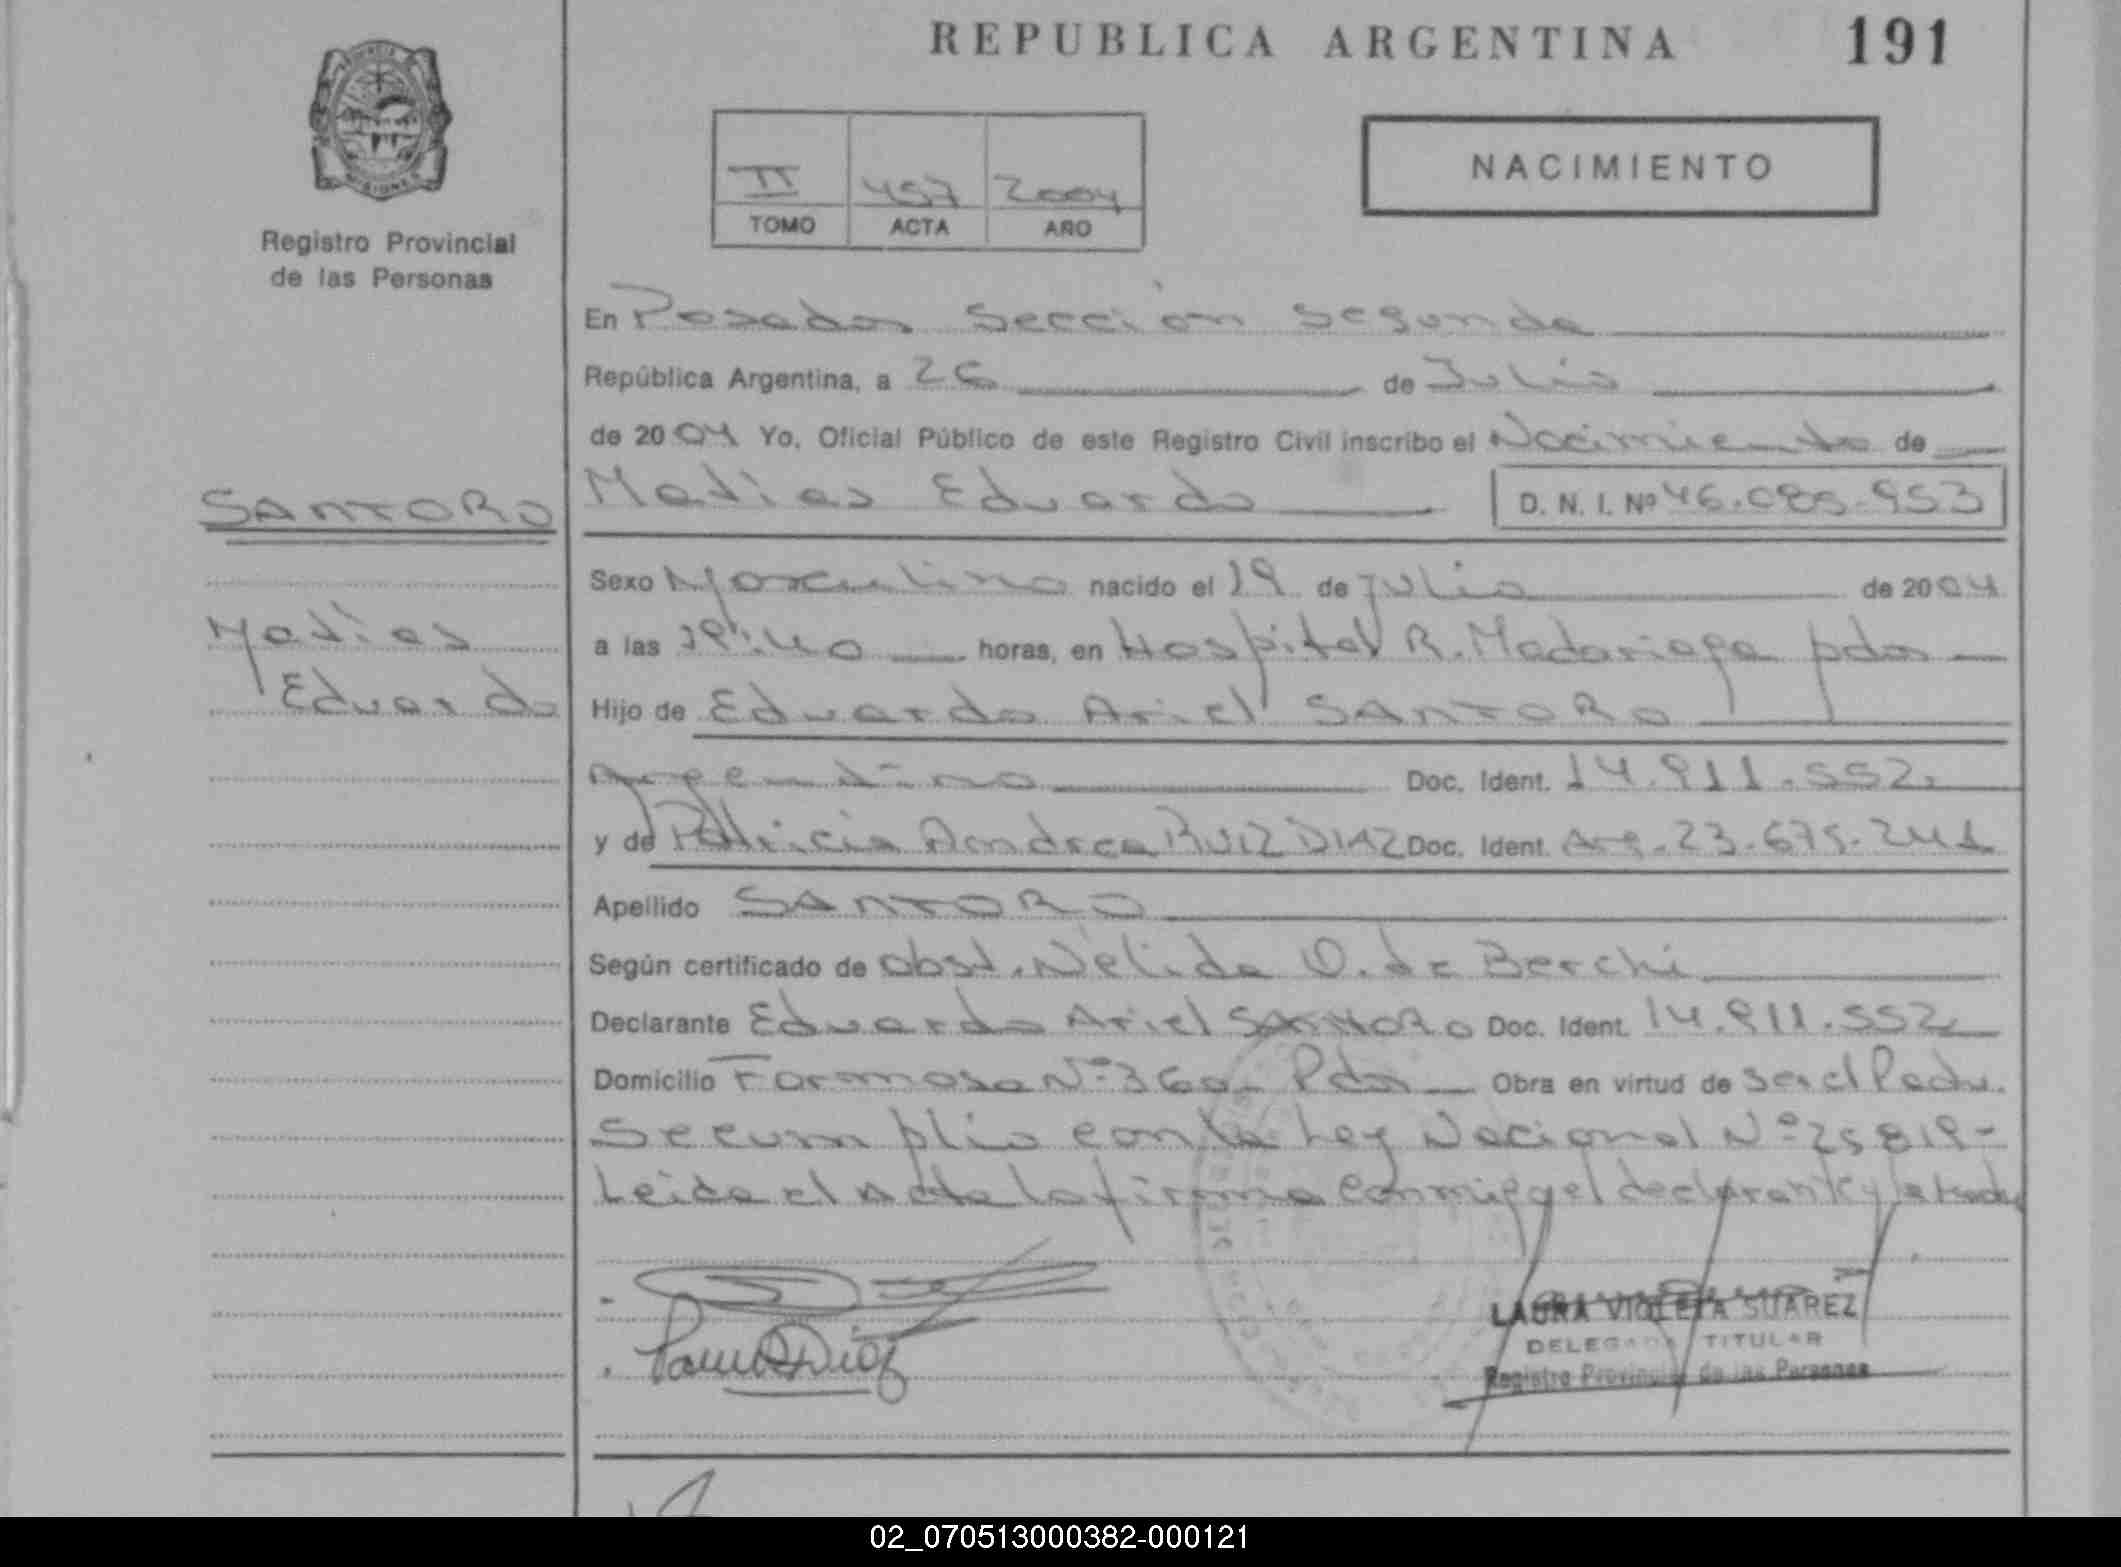 REPUBLICA ARGENTINA
191
MISIONES
Registro Provincial
de las Personas
II 457 2004
TOMO ACTA AÑO
NACIMIENTO
En Posadas Sección Segunda
República Argentina, a 26 de Julio
de 2004 Yo, Oficial Público de este Registro Civil inscribo el Nacimiento de
SANTORO
Matias Eduardo D. N. I. Nº 46.085.953
Sexo Masculino nacido el 19 de Julio de 2004
Matias
Eduardo
a las 19:40 horas, en Hospital R. Madariaga pdas
Hijo de Eduardo Ariel SANTORO
Argentino Doc. Ident. 14.911.552
y de Patricia Andrea RUIZ DIAZ Doc. Ident. Arg. 23.675.241
Apellido SANTORO
Según certificado de obst. Nélida O. de Berchi
Declarante Eduardo Ariel SANTORO Doc. Ident. 14.911.552
Domicilio Formosa Nº 360 Pdas Obra en virtud de ser el Padre.
Se cumplio con la Ley Nacional Nº 25819-
Leida el Acta la firma conmigo el declarante y la Madre
LAURA VIOLETA SUAREZ
DELEGADA TITULAR
Registro Provincial de las Personas
02_070513000382-000121